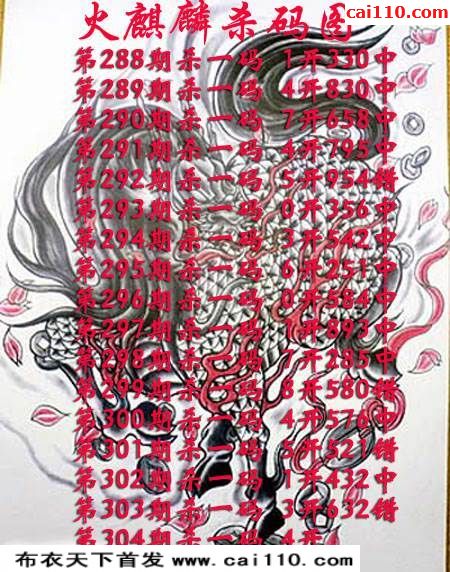 cai110.com
火麒麟杀码图
第288期杀一码 1开330中
第289期杀一码 4开830中
第290期杀一码 7开658中
第291期杀一码 4开795中
第292期杀一码 5开954错
第293期杀一码 0开356中
第294期杀一码 3开542中
第295期杀一码 6开251中
第296期杀一码 0开584中
第297期杀一码 1开893中
第298期杀一码 7开285中
第299期杀一码 8开580错
第300期杀一码 4开576中
第301期杀一码 5开521错
第302期杀一码 1开432中
第303期杀一码 3开632错
第304期杀一码 4开
布衣天下首发 www.cai110.com